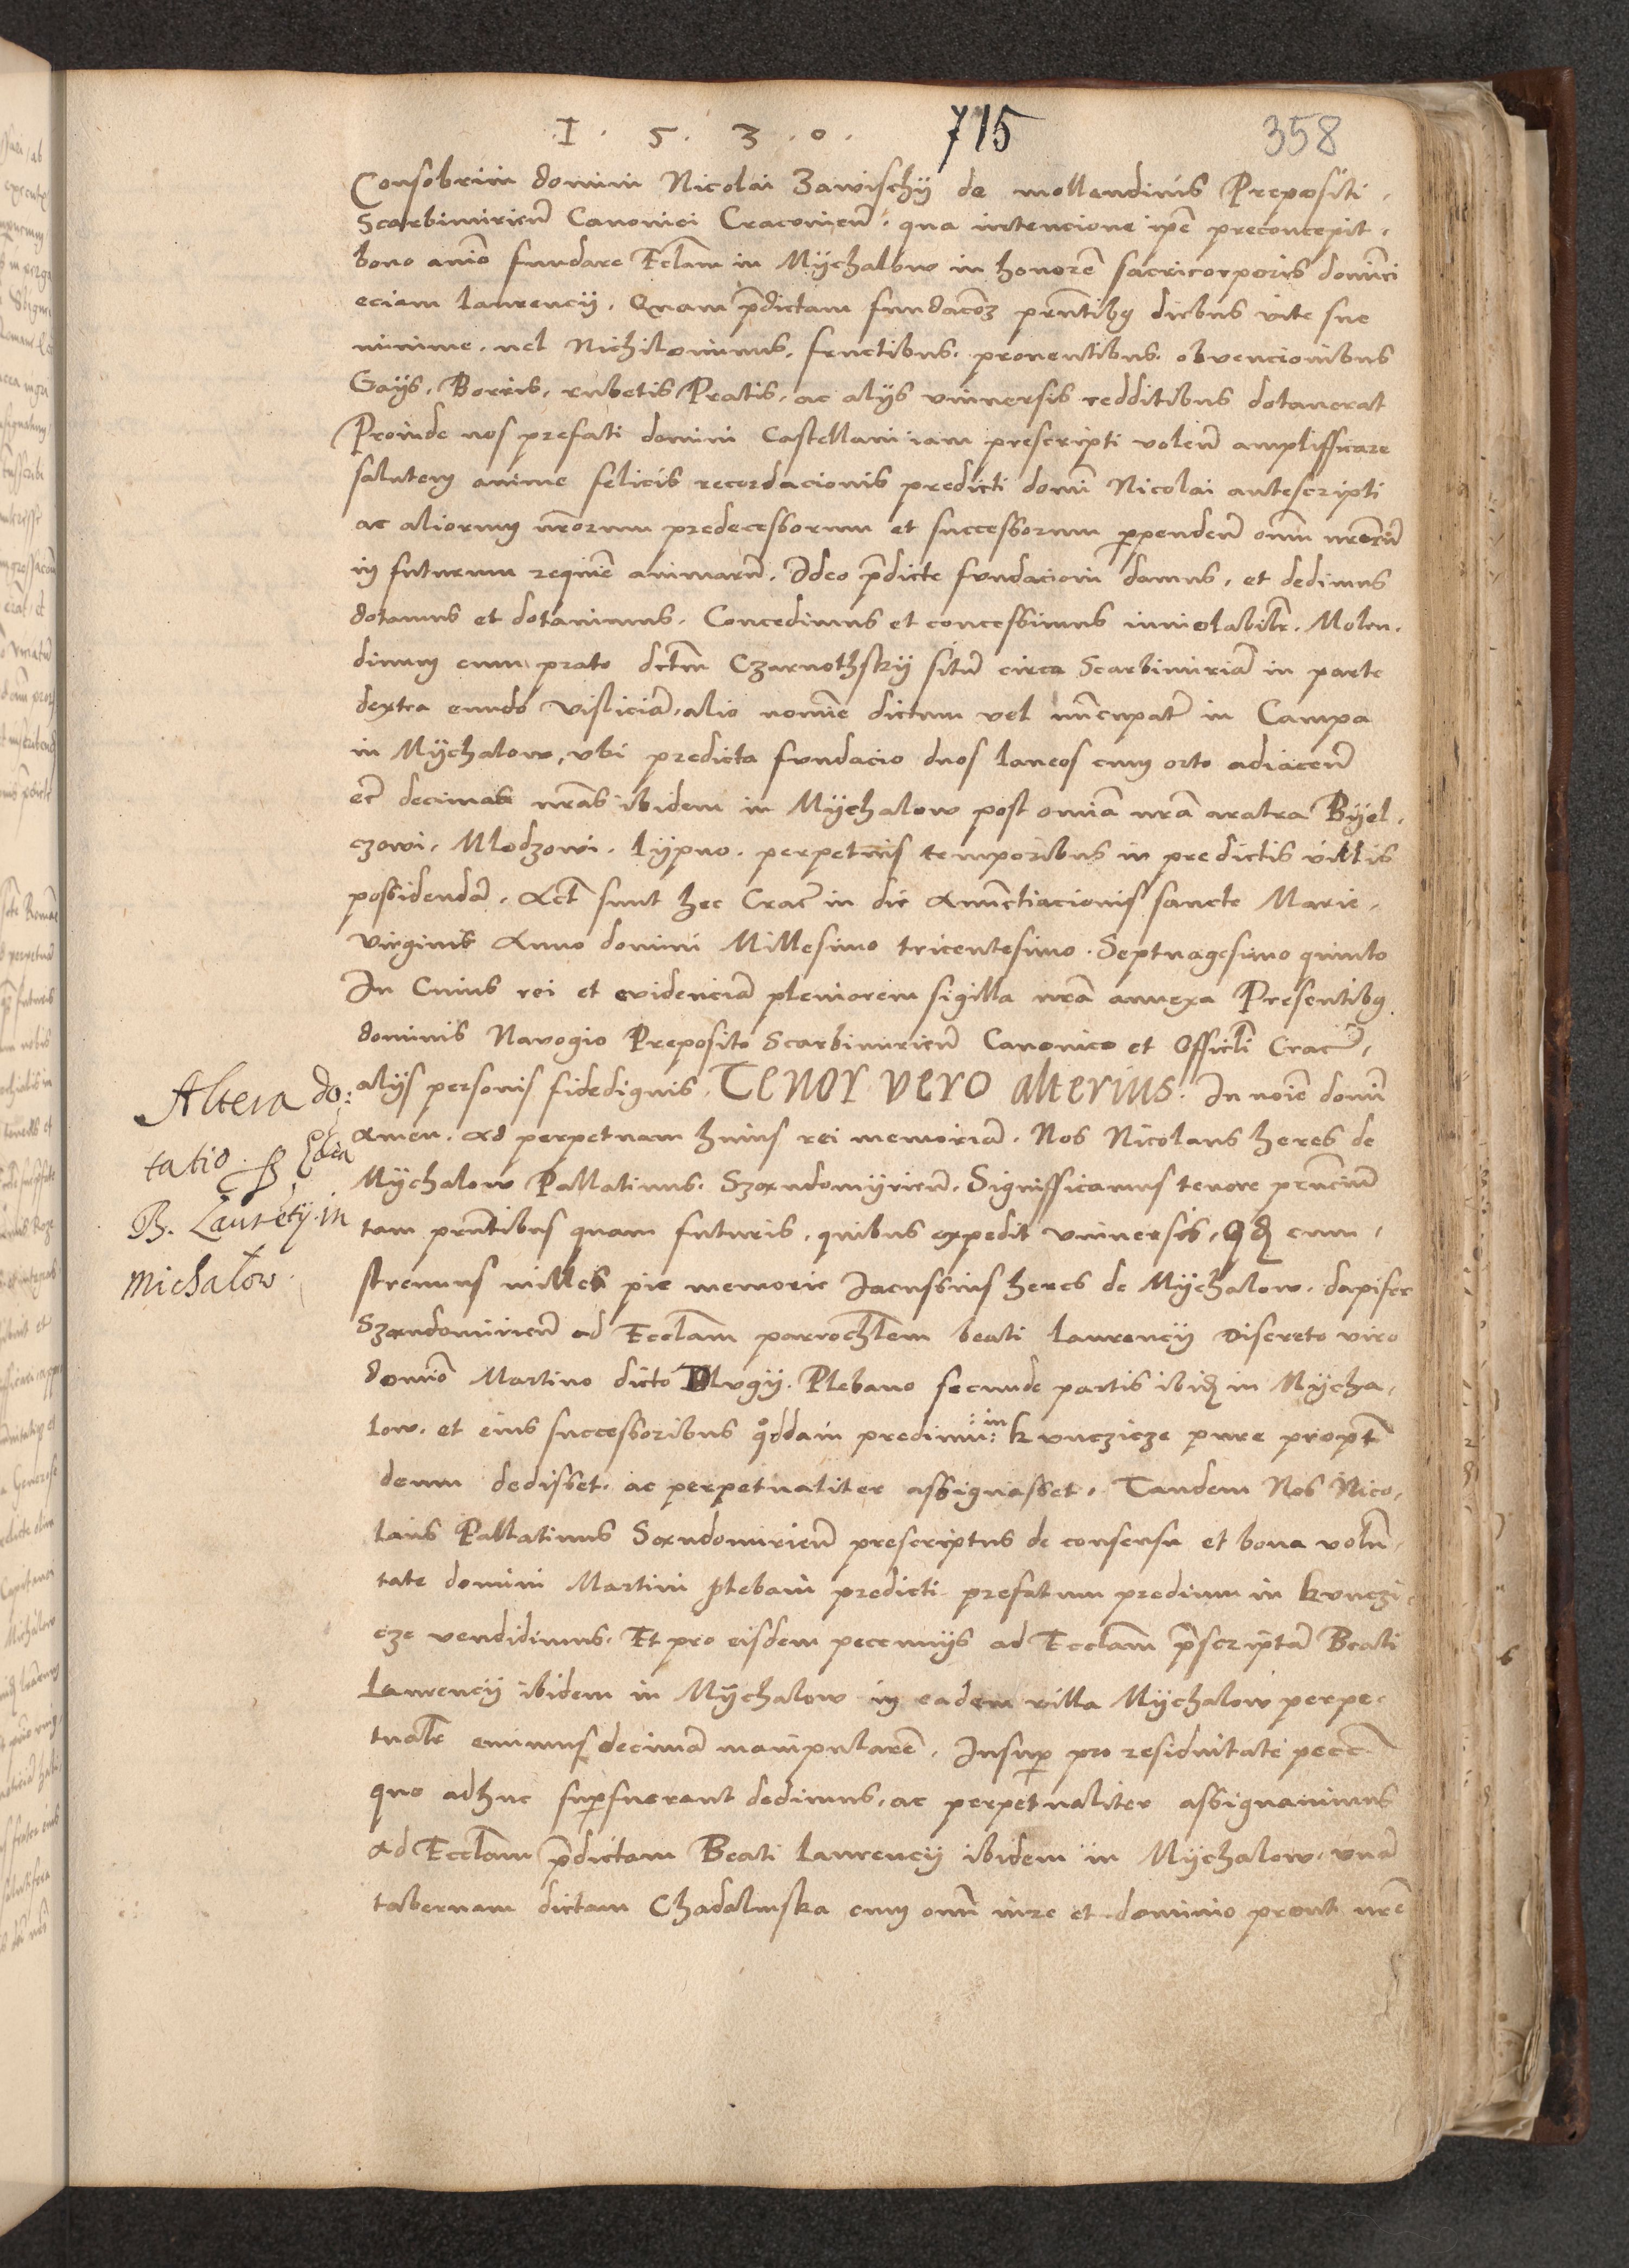 1 . 5 . 3 . 0 .
715
358
Consobrini domini Nicolai Zawischÿ de mollendinis Prepositi .
Scarbimirieñ Canonici Cracovieñ . qua intencione ip̃e preconcepit .
bono ani͂o fundare Ecl̃am in Mÿchalow in honorẽ sacricorporis domi͂ci
eciam laurencÿ . Quam p̃dictam fundacõẽ pñtibꝯ diebus vite sue
minime . vel Nichilominus . fructibus . proventibus . obvencionibus
Gaÿs . Borris . rubetis Pratis . ac alÿs vniversis redditibus dotaverat
Proinde nos prefati domini Castellani iam prescripti voleñ amplifficare
salutem anime felicis recordacionis predicti domi͂ Nicolai antescripti
ac aliorum nr̃orum predecessorum et successorum ꝑpendeñ om̃i nr̃orũ
in futurum requiẽ animarũ . Ideo p̃dicte fundacioni damus . et dedimus
dotamus et dotavimus . Concedimus et concessimus inviolabilr̃ . Molen .
dinum cum prato dct̃m Czarnothskÿ sitũ circa Scarbimiriã in parte
dextra eundo visliciã . alio nomi͂e dictum vel nũcupatũ in Campa
in Mÿchalow, vbi predicta fundacio duos laneos cum orto adiaceñ
et̃ decimas nr̃as ibidem in Mÿchalow post omi͂a nr̃a aratra Bÿel .
czowi . Mlodzowi . lÿpno . perpetuis temporibus in predictis villis
possidendã . Act̃ sunt hec Crac̃ in die Anũctiacionis sancte Marie .
virginis Anno domini Millesimo tricentesimo . Septuagesimo quinto
In Cuius rei et evidenciã pleniorem sigilla nr̃a annexa Presentibꝯ
dominis Navogio Preposito Scarbimirieñ Canonico et Officil̃i Crac̃ .
alÿs personis fidedignis . Tenor vero alterius . In noi͂e domi͂
Amen . Ad perpetuam huius rei memoriã . Nos Nicolaus heres de
Mÿchalow Pallatinus . Szandomÿrieñ . Significamus tenore pr̃nciũ
tam pñtibus quam futuris . quibus expedit vniversis . Qđ cum .
strenuus milles pie memorie Jacussius heres de Mÿchalow . dapifer
Szandomirieñ ad Eccl̃am parrochl̃em beati laurencÿ discreto viro
domi͂o Martino dicto Dlvgÿ . Plebano secunde partis ibiđ in Mÿcha .
low . et eius successoribus qͦddam predium : in kvnczicze pure propt̃
deum dedisset . ac perpetualiter assignasset . Tandem Nos Nico .
laus Pallatinus Sandomirieñ prescriptus de consensu et bona volũ .
tate domini Martini plebani predicti prefatum predium in kvnczi
cze vendidimus . Et pro eisdem peccunÿs ad Eccl̃am p̃scriptã Beati
Laurencÿ ibidem in Mÿchalow in eadem villa Mÿchalow perpe .
tual̃r emimus decimã manipularẽ . Insuꝑ pro residuitate pecc̃
quo adhuc suꝑfuerant dedimus . ac perpetualiter assignavimus
Ad Eccl̃am p̃dictam Beati laurencÿ ibidem in Mÿchalow . vnã
tabernam dictam Chadalmska cum om̃i iure et dominio prout nr̃e
Altera do:
tatio
B. Laurẽtÿ . in
Michalow